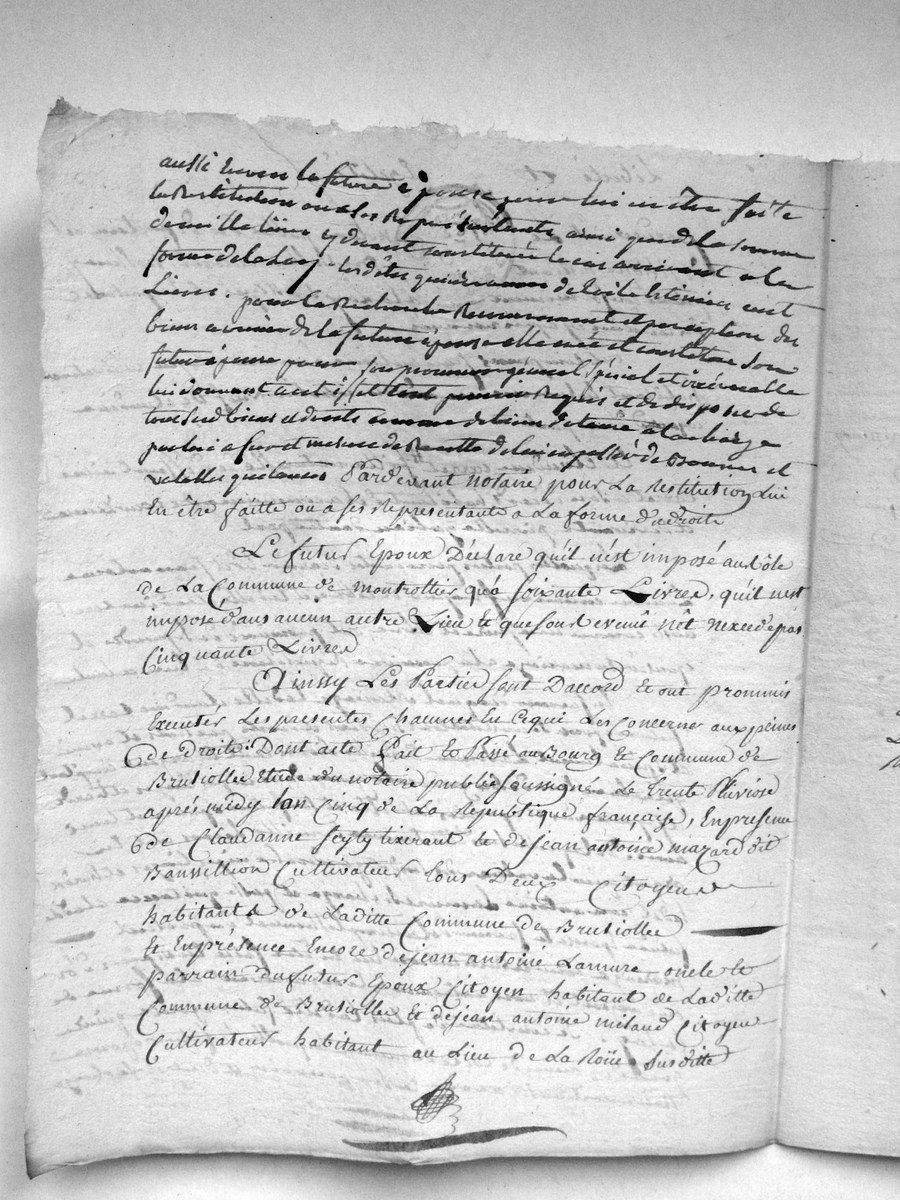 aussi Envers la future épouse pour lui en être faite
la Restitution ou a ses Représentants, ainsi que de la somme
de mille livres cy devant constituée le cas arrivant a la
forme de la Loy
Liens. pour la Recherche Recouvrement et perception des
biens a venir de la future épouse elle crée et constitue son
futur époux pour son procureur général spécial et irrévocable
lui donnant a cet effet tout pouvoir Requis et de disposer de
tous ses biens et droits a la charge
par lui a fur et mesure de Recette de lui en passer de Bonnes et
valables quitances Pardevant notaire pour La Restitution Lui
En être faitte ou a ses Representants a La forme du droit
Le futur Epoux Déclare qu'il n'est imposé au Rôle
de La Commune de montrottier qu'a soixante Livres, qu'il n'est
imposé dans aucun autre Lieu & que son Revenu net n'excede pas
Cinquante Livres
Ainssy Les Parties sont D'accord & ont prommis
Executer Les presentes Chacunes En cequi Les Concerne aux peines
de droits: Dont acte Fait & Passé au Bourg & Commune de
Brusiolles Etude du notaire public soussigné Le Trente Pluviose
après midy L'an Cinq de La République française, En presence
de Claudanne tixerant & de jean antoine mazard dit
Banssillion Cultivateur tous Deux Citoyens
habitants de Laditte Commune de Brusiolles
& En présence Encore de jean antoine Lamure oncle &
parrain du futur Epoux Citoyen habitant de Laditte
Commune de Brusiolles & de jean antoine milaud Citoyen
Cultivateur habitant au Lieu de La Roüe susditte